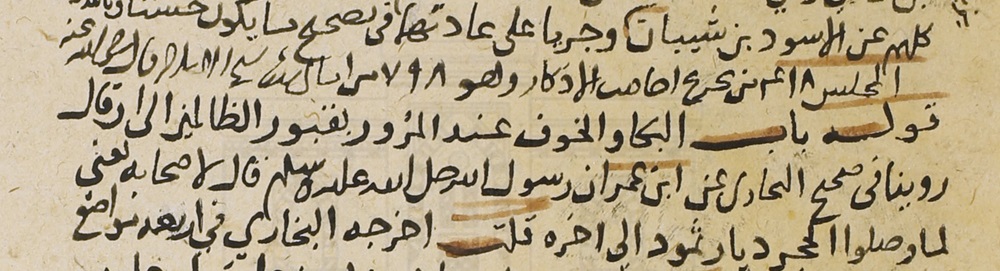 كلهم عن الاسود بن شيبان وجريا على عادتهما في تصحيح ما يكون حسنا
المجلس من تخريج احاديث الاذكار وهو ٧٩٨ من قال
قوله باب البكا والخوف عند المرور بقبور الظالمين الى ان قال
روينا في صحيح البخاري عن ابن عمر ان رسول الله صلى الله عليه وسلم قال لاصحابه يعني
لما وصلوا الحجر ديار ثمود الى اخره قلت اخرجه البخاري في اربعة مواضع